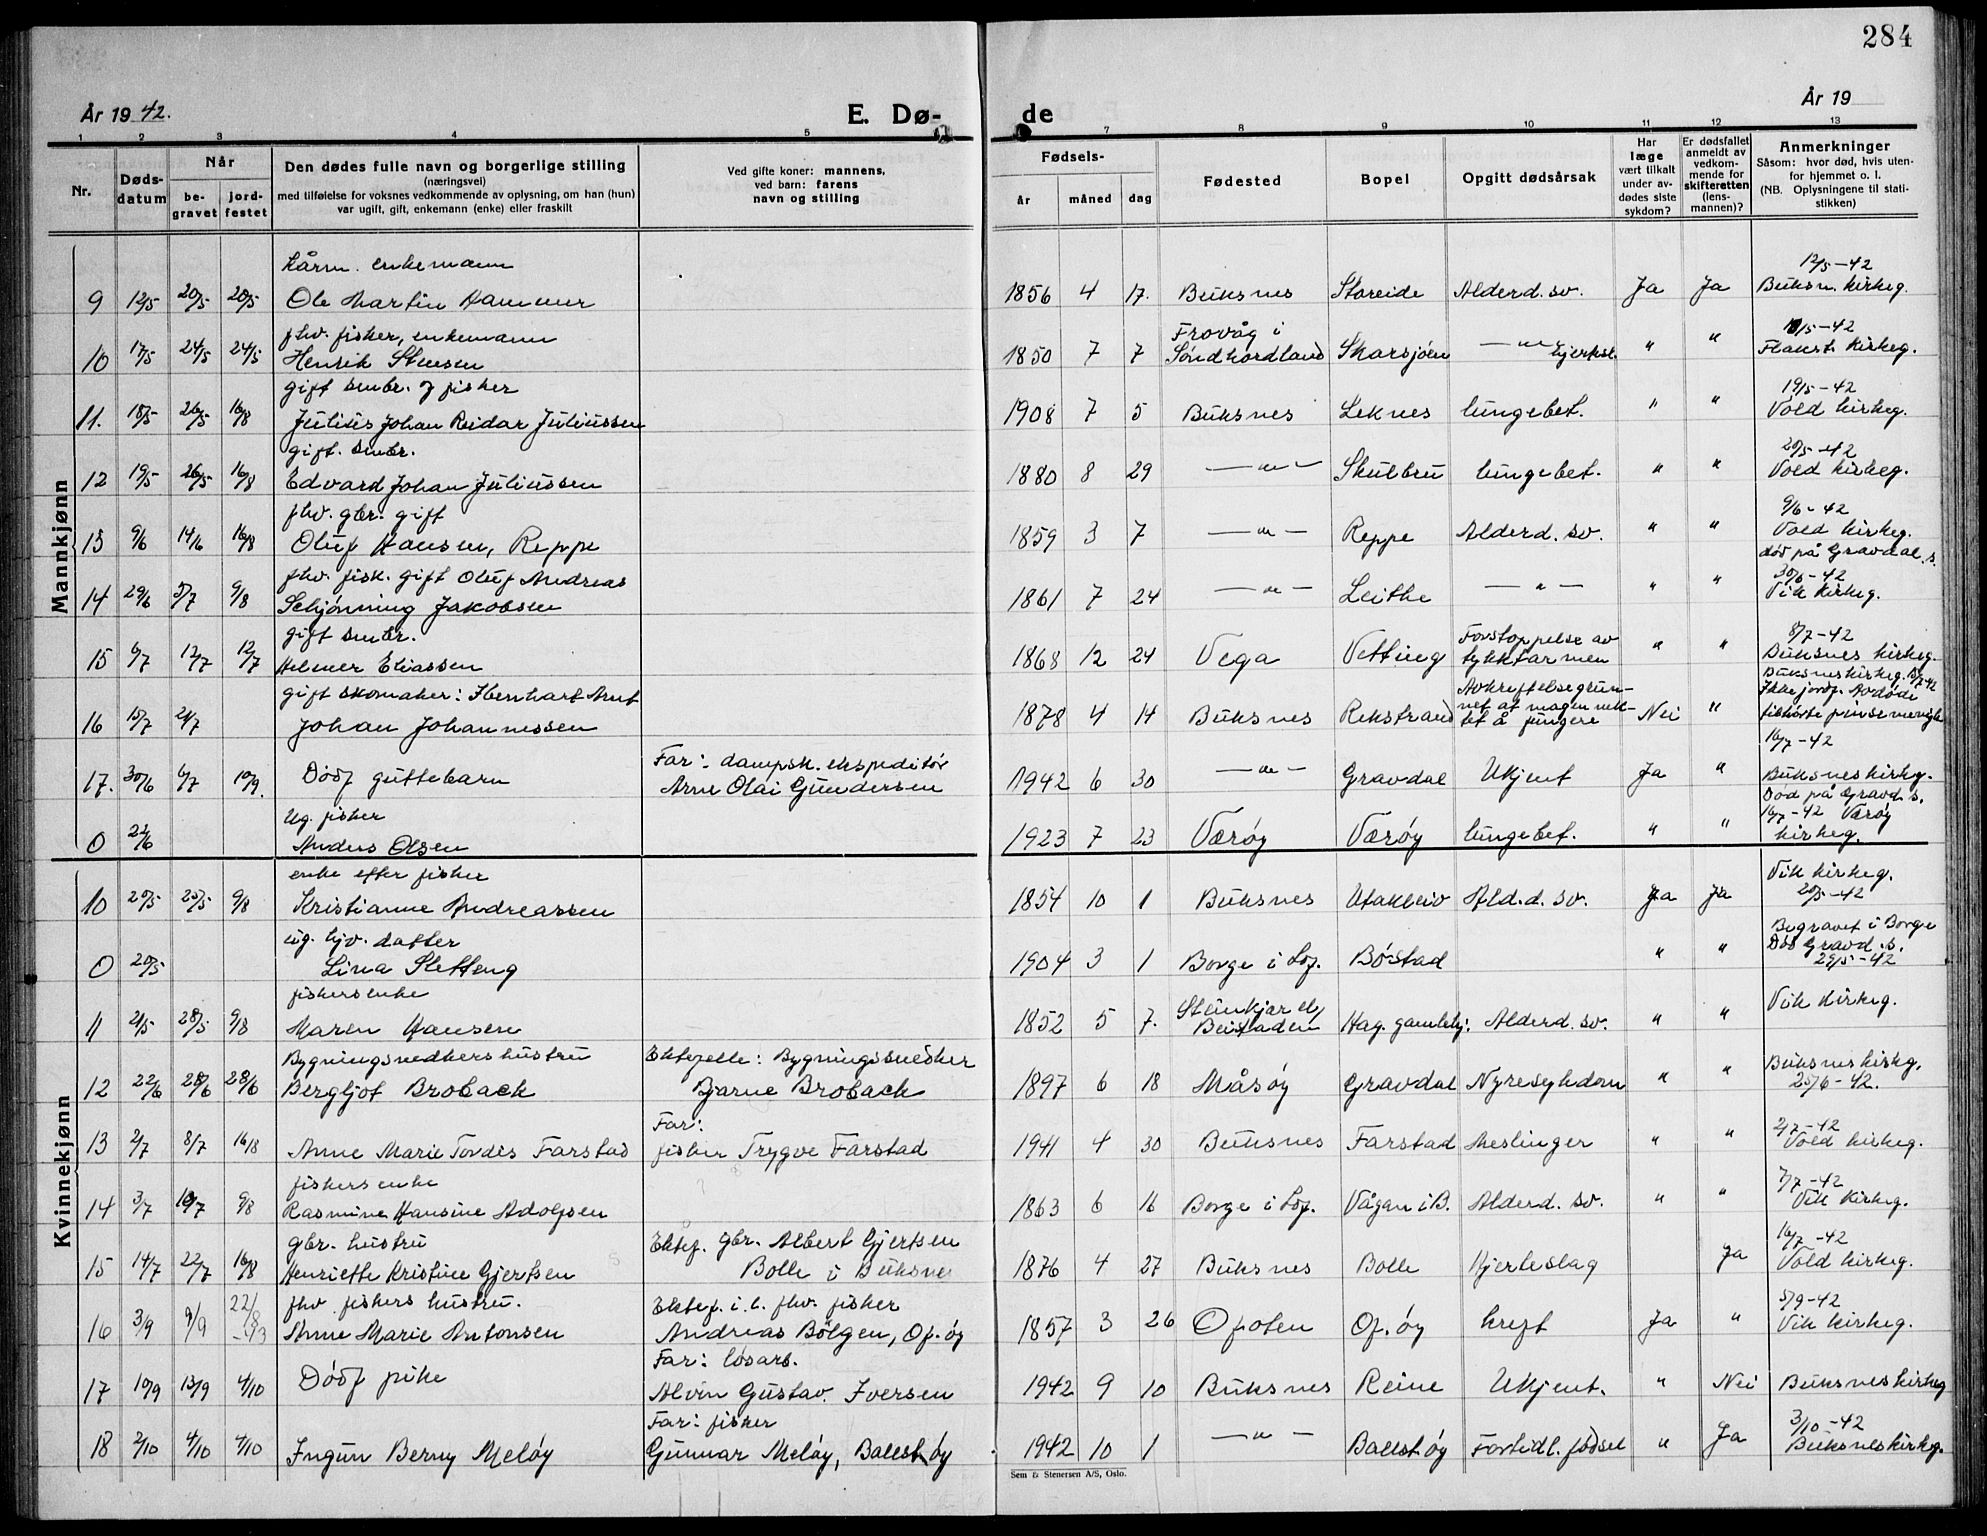 284
År 1942.
E. Dø-
de
År 19
1 2 3 4 5 7 8 9 10 11 12 13
Nr.
Døds-
datum
Når
be-
gravet
jord-
festet
Den dødes fulle navn og borgerlige stilling
(næringsvei)
med tilføielse for voksnes vedkommende av oplysning, om han (hun)
var ugift, gift, enkemann (enke) eller fraskilt
Ved gifte koner: mannens,
ved barn: farens
navn og stilling
Fødsels-
år
måned
dag
Fødested
Bopel
Opgitt dødsårsak
Har
læge
vært tilkalt
under av-
dødes siste
sykdom?
Er dødsfallet
anmeldt av
vedkom-
mende for
skifteretten
(lens-
mannen)?
Anmerkninger
Såsom: hvor død, hvis uten-
for hjemmet o. l.
(NB. Oplysningene til stati-
stikken)
Mannkjønn
kårm. enkemann 12/5-42
9 12/5 20/5 20/5 Ole Martin Hammer 1856 4 17. Buksnes Storeide Alderd. sv. Ja Ja Buksn. kirkeg.
fhv. fisker, enkemann Frovåg i 18/5-42
10 17/5 24/5 24/5 Henrik Stensen 1850 7 7 Søndhordland Skarsjøen —"— hjerte " " Flakst. kirkeg.
gift småbr. og fisker 19/5-42
11. 18/5 26/5 16/8 Julius Johan Reidar Juliussen 1908 7 5 Buksnes Leknes lungebet. " " Vold kirkeg.
gift. småbr. 20/5-42
12 19/5 26/5 16/8 Edvard Johan Juliussen 1880 8 29 —"— Skulbru lungebet. " " Vold kirkeg.
fhv. gbr. gift 9/6-42
13 9/6 14/6 16/8 Oluf Hansen, Reppe 1859 3 7 —"— Reppe Alderd. sv. " " Vold kirkeg.
død på Gravdal s.
fhv. fisk. gift Oluf Andreas 30/6-42
14 29/6 5/7 9/8 Schjønning Jakobsen 1861 7 24 —"— Leithe —"— " " Vik kirkeg.
gift småbr. Forstoppelse av 8/7-42
15 6/7 12/7 12/7 Helmer Eliassen 1868 12 24 Vega Vetting tykktarmen " " Buksnes kirkeg.
gift skomaker: Ibenhart Arnt Avkreftelse grun- Buksnes kirkeg.
Ikke jordf. Avdøde
16 15/7 21/7 Johan Johannessen 1878 4 14 Buksnes Rekstrand net at magen nek-
tet å fungere Nei " tilhørte pinsemenigh.
Far: dampsk. ekspeditør 16/7-42
17. 30/6 6/7 10/9. Dødf guttebarn Arne Olai Gundersen 1942 6 30 —"— Gravdal Ukjent Ja " Buksnes kirkeg.
Død på Gravd. s.
ug. fisker 16/7-42 Værøy
0 22/6 Anders Olsen 1923 7 23 Værøy Værøy lungebet. " " kirkeg.
Kvinnekjønn
enke efter fisker Vik kirkeg.
10 20/5 25/5 9/8 Kristianne Andreassen 1854 10 1 Buksnes Utakleiv Ald.d. sv. Ja Ja 20/5-42
ug. hjv. datter Begravet i Borge
Død Gravd. s.
0 20/5 Lina Sletteng 1904 3 1 Borge i Lof. Bøstad " " 29/5-42
fiskersenke Steinkjær el. Vik kirkeg.
11 21/5 28/5 9/8 Maren Hansen 1852 5 7. Beistaden Hag. gamlehj. Alderd. sv. " "
Bygningsnedkers hustru Ektefelle: Bygningssnedker Buksnes kirkeg.
12 22/6 28/6 28/6 Bergljot Broback Bjarne Broback 1897 6 18 Måsøy Gravdal Nyresykdom " " 25/6-42.
Far: 2/7-42
13 2/7 8/7 16/8 Anne Marie Tordis Farstad fisker Trygve Farstad 1941 4 30 Buksnes Farstad Meslinger " " Vold kirkeg.
fiskersenke 7/7-42
14 3/7 10/7 9/8 Rasmine Hansine Adolfsen 1863 6 16 Borge i Lof. Vågan i B. Alderd. sv. " " Vik kirkeg.
gbr. hustru Ektef. gbr. Albert Gjertsen 16/7-42
15 14/7 22/7 16/8 Henriette Kristine Gjertsen Bolle i Buksnes 1876 4 27 Buksnes Bolle Hjerteslag Ja Vold kirkeg.
fhv. fiskers hustru. Ektef. i.l. fhv. fisker 5/9-42
16 3/9 9/9 22/8-43 Anne Marie Antonsen Andreas Bølgen, Of.øy 1857 3 26 Ofoten Of.øy kreft Ja " Vik kirkeg.
Far: løsarb.
17 10/9 13/9 4/10 Dødf pike Alvin Gustav. Iversen 1942 9 10 Buksnes Reine Ukjent. " Nei Buksnes kirkeg
Far: fisker 3/10-42
18 2/10 4/10 4/10 Ingun Berny Meløy Gunnar Meløy, Ballstøy 1942 10 1 —"— Ballstøy Fortidl. fødsel " Ja Buksnes kirkeg.
Sem & Stenersen A/S, Oslo.